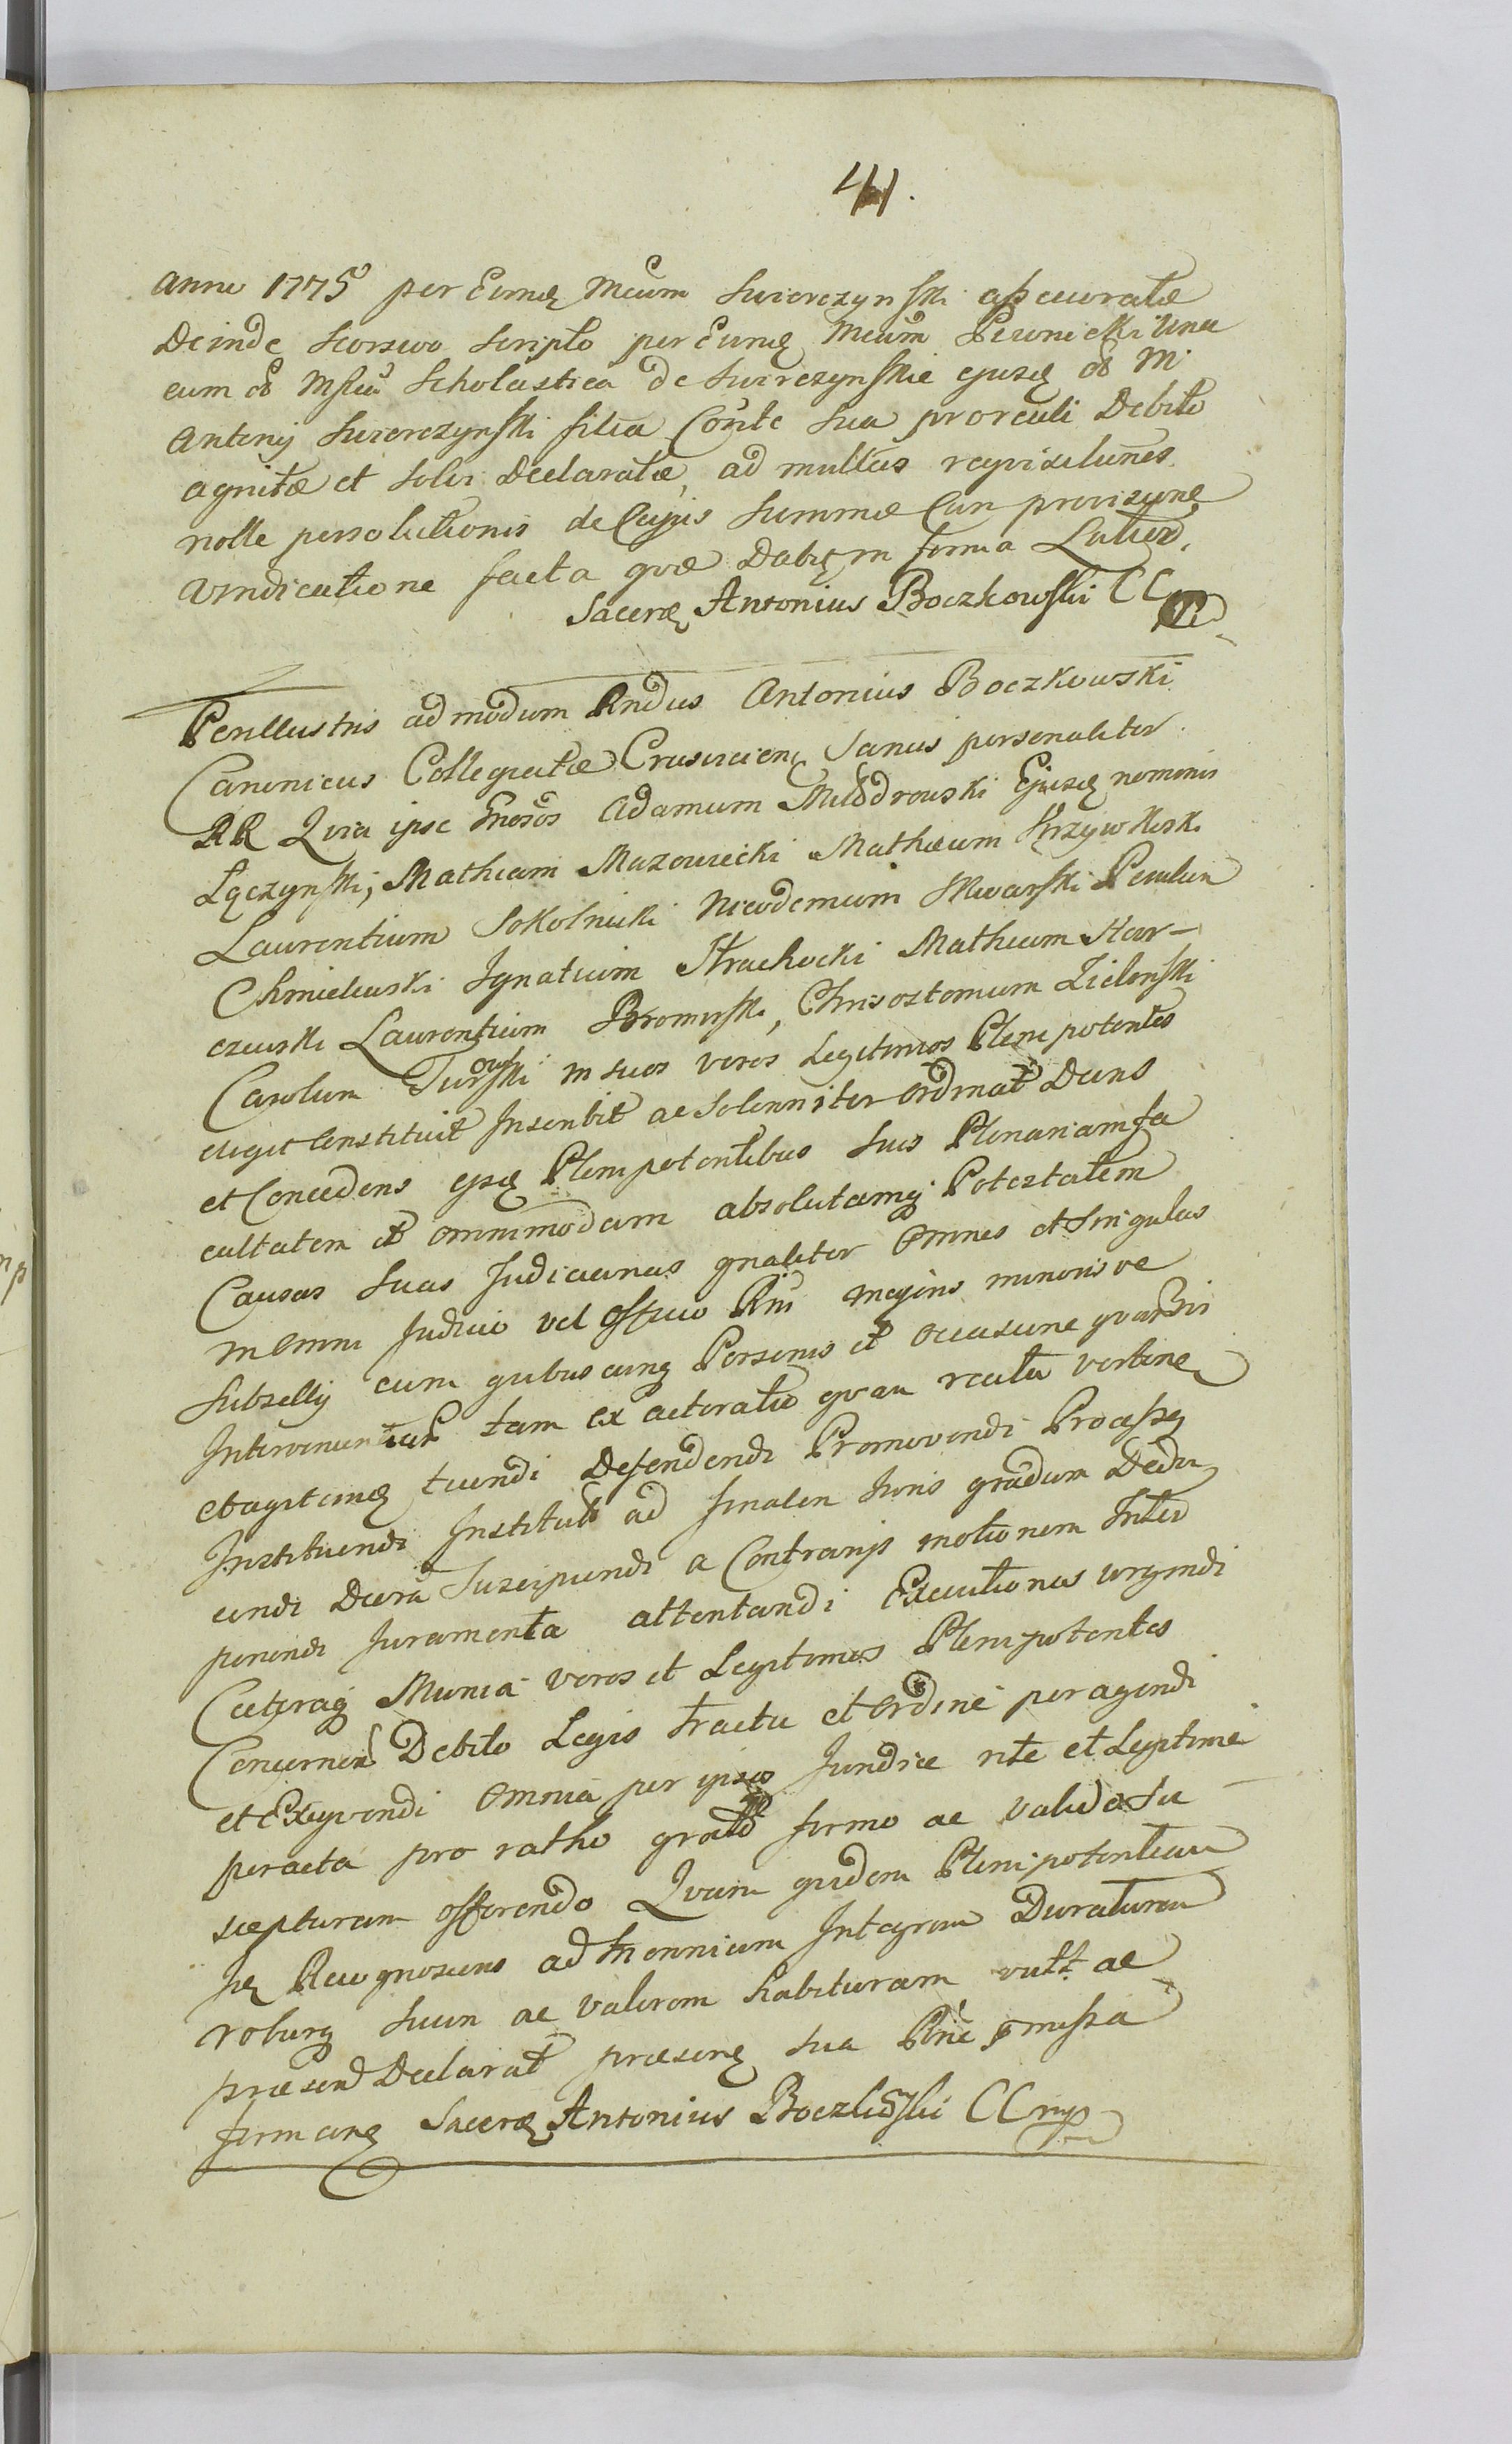 41.
anno 1775 per Eumdę Mcum Swierczynski assecuratæ
Deinde seorsivo scripto per Eumdę Mcum Pewnicki una
cum olim Mfica Scholastica de Swierczynskie ejusdę olim M
Antonij Swierczynski filia Conte sua pro reali Debito
agnitæ et solvi Declaratæ, ad multas requisitiones
nolle persolutionis de Cujus Summæ Cum provisione
vindicatione facta quæ Dabitę in forma Latiori
Sacerdę Antonius Boczkowski CC mp
Perillustris admodum Rndus Antonius Boczkowski
Canonicus Collegiatæ Crusvicienę Sanus personaliter
RR Qvia ipse Gnosos Adamum Modrowski Ejusdę nominis
Łączynski, Mathiam Mazowiecki Mathæum Krzywkoski
Laurentium Sokolnicki Nicodemum Skwarski Paulum
Chmielewski Ignatium Strachocki Mathæum Kar-
czewski Laurentium Bromirski, Chrisostomum Zielenski
Carolum Turowski in suos veros Legitimos Plenipotentes
elegit Constituit Inscribit ac Solenniter ordinat Dans
et Concedens ejsdę Plenipotentibus Suis Plenariam fa
cultatem et omnimodam absolutamq Potestatem
Causas Suas Judiciarias gnaliter Omnes et Singulas
in Omni Judicio vel Officio Rni majoris minorisve
Subsellij cum quibuscunq Personis et occasione quavis
Intervenientiæ tam ex actoratu quam reatu vertenę
et agitanę tuendi Defendendi Promovendi Processę
Instituendi Instituti ad finalem Juris gradum Dedu
cendi Decreta Suscipiendi a Contrarijs motionem Inter
ponendi Juramenta attentandi Executiones urgendi
Cæteraq Munia veros et Legitimos Plenipotentes
Concernen Debito Legis tractu et Ordine peragendi
et Exequendi Omnia per ipsos Juridice rite et Legitime
peracta pro ratho grato firmo ac valido Su
scepturum offerendo Qvam quidem Plenipotentiam
Sę Recognoscens ad triennium Integrum Duraturam
roburq suum ac valorem habituram vult ac
præsend Declarat præsenę sua Pñe pmissa
firmanę Sacerdę Antonius Boczkowski CC mp